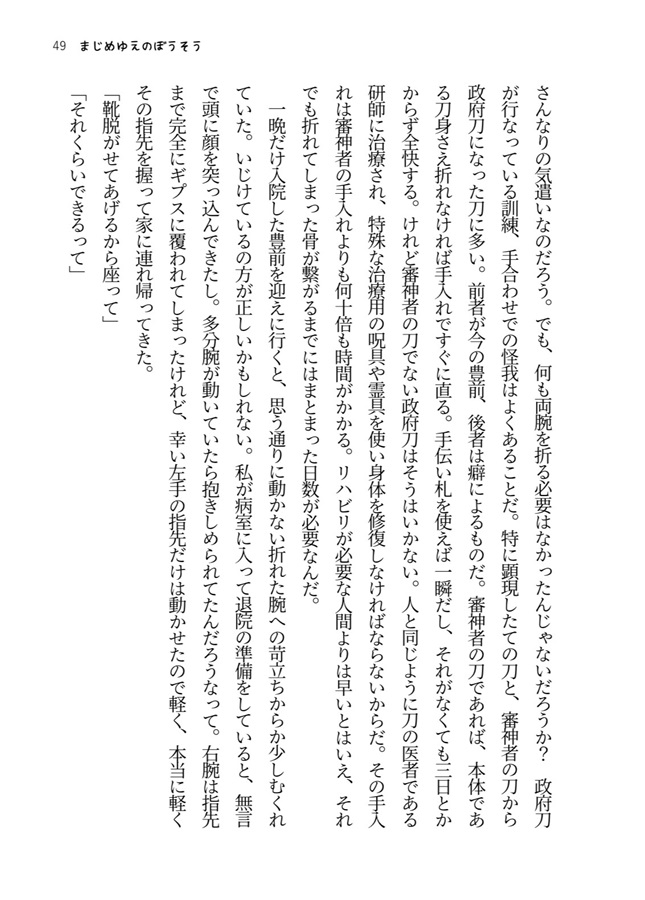 49 まじめゆえのぼうそう
さんなりの気遣いなのだろう。でも、何も両腕を折る必要はなかったんじゃないだろうか？　政府刀
が行なっている訓練、手合わせでの怪我はよくあることだ。特に顕現したての刀と、審神者の刀から
政府刀になった刀に多い。前者が今の豊前、後者は癖によるものだ。審神者の刀であれば、本体であ
る刀身さえ折れなければ手入れですぐに直る。手伝い札を使えば一瞬だし、それがなくても三日とか
からず全快する。けれど審神者の刀でない政府刀はそうはいかない。人と同じように刀の医者である
研師に治療され、特殊な治療用の呪具や霊具を使い身体を修復しなければならないからだ。その手入
れは審神者の手入れよりも何十倍も時間がかかる。リハビリが必要な人間よりは早いとはいえ、それ
でも折れてしまった骨が繋がるまでにはまとまった日数が必要なんだ。
　一晩だけ入院した豊前を迎えに行くと、思う通りに動かない折れた腕への苛立ちからか少しむくれ
ていた。いじけているの方が正しいかもしれない。私が病室に入って退院の準備をしていると、無言
で頭に顔を突っ込んできたし。多分腕が動いていたら抱きしめられてたんだろうなって。右腕は指先
まで完全にギプスに覆われてしまったけれど、幸い左手の指先だけは動かせたので軽く、本当に軽く
その指先を握って家に連れ帰ってきた。
「靴脱がせてあげるから座って」
「それくらいできるって」